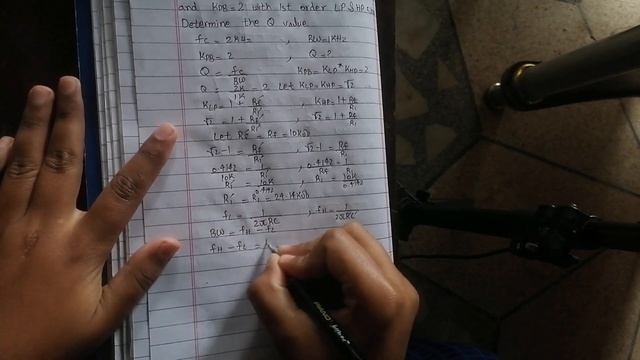 and KPB = 2 with 1st order LP & HP
Determine the Q value
fc = 2KHz , BW = 1KHz
KPB = 2 , Q = ?
Q = fc/BW KPB = KLP * KHP = 2
Q = 2K/1K = 2 Let KLP = KHP = √2
KLP = 1 + Rf'/R1' , KHP = 1 + Rf/R1
√2 = 1 + Rf'/R1' , √2 = 1 + Rf/R1
Let Rf' = Rf = 10KΩ
√2 - 1 = Rf'/R1' , √2 - 1 = Rf/R1
0.4142/10K = 1/R1' , 0.4142/Rf = 1/R1
R1' = 10K/0.4142 , R1 = 10K/0.4142
R1' = R1 = 24.14KΩ
fL = 1/2πRC , fH = 1/2πRC
BW = fH - fL
fH - fL = 1